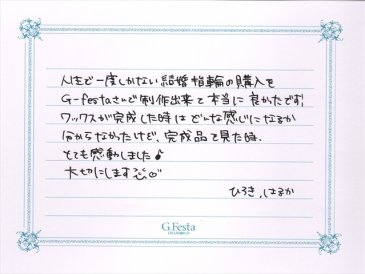 人生で一度しかない結婚指輪の購入を
G-festaさんで制作出来て本当に良かったです!
ワックスが完成した時はどんな感じになるか
分からなかったけど、完成品で見た時、
とても感動しました♪
大切にします
ひろき、はるか
G.Festa